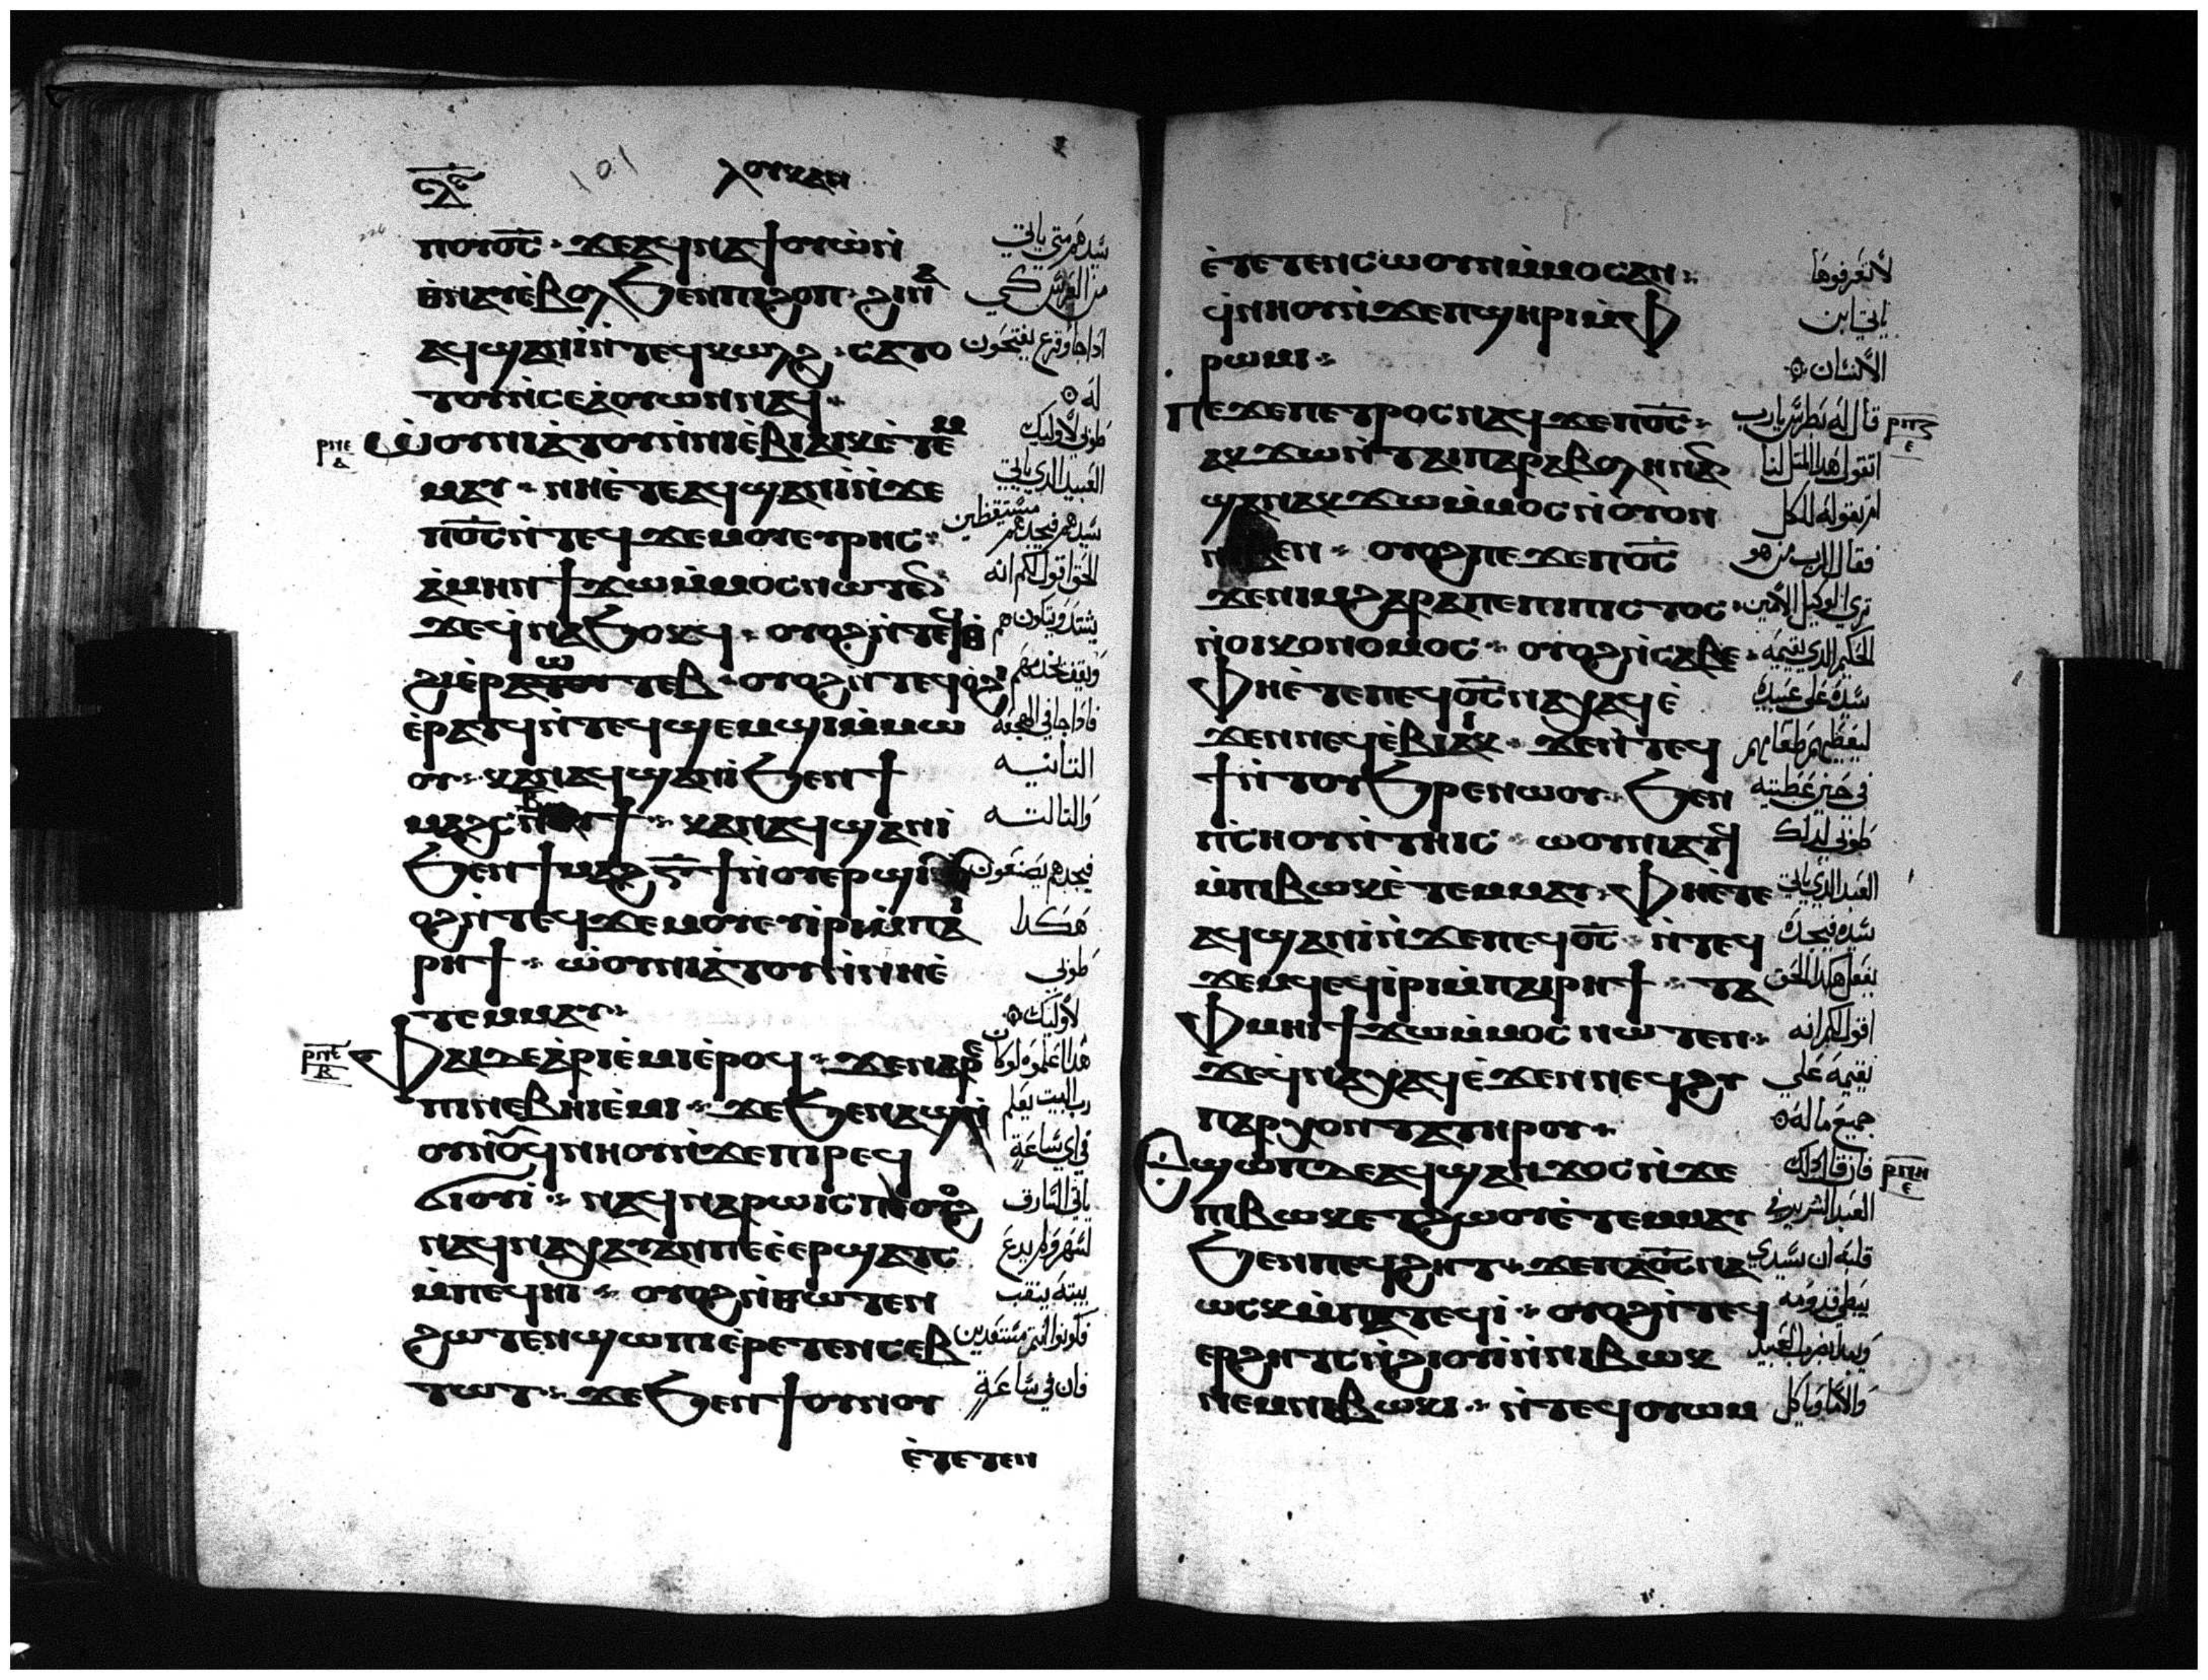 ⲗⲟⲩⲕⲁⲛ
101
ⲡⲟⲩⲟ̅ⲥ̅ · ϫⲉⲁϥⲛⲁϯⲟⲩⲱ̀ⲛ̀
ⲛ̀ⲛⲁⲩⲉ̀ⲃⲟⲗϧⲉⲛⲡⲓϩⲟⲡ · ϩⲓⲛⲁ
ⲁϥϣⲁⲛⲓ̀ⲛ̀ⲧⲉϥⲕⲱⲗϩ · ⲥⲁⲧⲟ
ⲧⲟⲩⲛ̀ⲥⲉⲁ̀ⲟⲩⲱⲛⲛⲁϥ
ⲱ̀ⲟⲩⲛⲓⲁ̀ⲧⲟⲩⲛ̀ⲛⲓⲉ̀ⲃⲓⲁⲓⲕⲉ̀ⲧⲉⲙ
ⲙⲁⲩ · ⲛⲏⲉ̀ⲧⲉⲁϥϣⲁⲛⲓ̀ⲛ̀ϫⲉ
ⲡⲟⲩⲟ̅ⲥ̅ⲛ̀ⲧⲉϥϫⲉⲙⲟⲩⲉⲩⲣⲏⲥ ·
ⲁ̀ⲙⲏⲛϯϫⲱⲙ̀ⲙⲟⲥⲛⲱⲧⲉⲛ
ϫⲉϥⲛⲁϧⲟⲕϥ · ⲟⲩⲟϩⲛ̀ⲧⲉϥⲑ
ⲉ̀ⲣⲁⲧϥⲛ̀ⲧⲉϥϣⲉⲙϣⲓⲙ̀ⲙⲱ
ⲟⲩ · ⲕⲁⲛⲁϥϣⲁⲛⲓ̀ϧⲉⲛϯ
ϧⲉⲛϯⲙⲁϩⲅ̅ϯⲛ̀ⲟⲩⲉⲣϣⲓ
ⲟϩⲛ̀ⲧⲉϥϫⲉⲙⲟⲩⲉⲩⲓ̀ⲣⲓⲙ̀ⲡⲁⲓ
ⲣⲏϯ · ⲱ̀ⲟⲩⲛⲓⲁ̀ⲧⲟⲩⲛ̀ⲛⲏⲉ̀
ⲧⲉⲙⲙⲁⲩ
ⲫⲁⲓⲇⲉⲁ̀ⲣⲓⲉ̀ⲙⲓⲉ̀ⲣⲟϥ · ϫⲉⲛⲁⲣⲉ
ⲡⲓⲛⲉⲃⲏⲓⲉ̀ⲙⲓ · ϫⲉϧⲉⲛⲁϣⲛ̀
ⲟⲩⲛⲟⲩϥⲛⲏⲟⲩⲛ̀ϫⲉⲡⲓⲣⲉϥ
ϭⲓⲟⲩⲓ̀ · ⲛⲁϥⲛⲁⲣⲱⲓⲥⲡⲉⲟⲩⲟϩ
ⲛⲁϥⲛⲁⲭⲁⲩⲁⲛⲡⲉⲉ̀ⲉⲣϣⲁⲧⲥ
ⲙ̀ⲡⲉϥⲏⲓ · ⲟⲩⲟϩⲛ̀ⲑⲱⲧⲉⲛ
ϩⲱⲧⲉⲛϣⲱⲡⲓⲉ̀ⲣⲉⲧⲉⲛⲥⲉⲃ
ⲧⲱⲧ · ϫⲉϧⲉⲛϯⲟⲩⲛⲟⲩ
ⲉ̀ⲧⲉⲧⲉⲛ
سيدهم متى ياتي
من العرس كي
اذا جا وقرع يفتحون
له
طوبى لاوليك
العبيد الذي ياتي
سيدهم فيجدهم مستيقظين
الحق اقول لكم انه
يشتد ويتكون هم
ويقف يخدمهم
فاذا جا في الهجعه
التانيه
والتالته
فيجدهم يصنعون
هكدا
طوبى
لاوليك
هدا اعلموه لو كان
رب البيت يعلم
في اي ساعة
ياتي السارق
لسهر ولم يدع
بيته ينقب
فكونوا انتم مستعدين
فان في ساعة
ⲉ̀ⲧⲉⲧⲉⲛⲥⲱⲟⲩⲛⲙ̀ⲙⲟⲥⲁⲛ ·
ϥⲛⲏⲟⲩⲛ̀ϫⲉⲡϣⲏⲣⲓⲙ̀ⲫ
ⲣⲱⲙⲓ ·
ⲡⲉϫⲉⲡⲉⲧⲣⲟⲥⲛⲁϥϫⲉⲡⲟ̅ⲥ̅ ·
ⲁⲕϫⲱⲛ̀ⲧⲁⲓⲡⲁⲣⲁⲃⲟⲗⲏⲛⲁⲛ
ϣⲁⲛⲁⲕϫⲱⲙ̀ⲙⲟⲥⲛ̀ⲟⲩⲟⲛ
ⲛⲓⲃⲉⲛ · ⲟⲩⲟϩⲡⲉϫⲉⲡⲟ̅ⲥ̅
ϫⲉⲛⲓⲙϩⲁⲣⲁⲡⲉⲡⲓⲡⲓⲥⲧⲟⲥ ·
ⲛ̀ⲟⲓⲕⲟⲛⲟⲙⲟⲥ · ⲟⲩⲟϩⲛ̀ⲥⲁⲃⲉ ·
ⲫⲏⲉ̀ⲧⲉⲡⲉϥⲟ̅ⲥ̅ⲛⲁⲭⲁϥⲉ̀
ϫⲉⲛⲛⲉϥⲉ̀ⲃⲓⲁⲓⲕ · ϫⲉⲛ̀ⲧⲉϥ
ϯⲛ̀ⲧⲟⲩϧⲣⲉⲛⲱⲟⲩ · ϧⲉⲛ
ⲡ̀ⲥⲏⲟⲩⲛ̀ⲧⲏⲓⲥ · ⲱⲟⲩⲛⲓⲁⲧϥ
ⲙ̀ⲡⲓⲃⲱⲕⲉ̀ⲧⲉⲙⲙⲁⲩ · ⲫⲏⲉ̀ⲧⲉ
ⲁϥϣⲁⲛⲓ̀ⲛ̀ϫⲉⲡⲉϥⲟ̅ⲥ̅ · ⲛ̀ⲧⲉϥ
ϫⲉⲙϥⲉϥⲓ̀ⲣⲓⲙ̀ⲡⲁⲓⲣⲏϯ · ⲧⲁ
ⲫⲙⲏⲓϯϫⲱⲙ̀ⲙⲟⲥⲛⲱⲧⲉⲛ ·
ϫⲉϥⲛⲁⲭⲁϥⲉ̀ϫⲉⲛⲛⲉϥϩⲩ
ⲡⲁⲣⲭⲟⲛⲧⲁⲧⲏⲣⲟⲩ ·
ⲉϣⲱⲡⲇⲉⲁϥϣⲁⲛϫⲟⲥⲛ̀ϫⲉ
ⲡⲓⲃⲱⲕⲉⲧϩⲱⲟⲩⲉ̀ⲧⲉⲙⲙⲁⲩ
ϧⲉⲛⲡⲉϥϩⲏⲧ · ϫⲉⲡⲁⲟ̅ⲥ̅ⲛⲁ
ⲱⲥⲕⲙ̀ⲡⲁⲧⲉϥⲓ̀ · ⲟⲩⲟϩⲛ̀ⲧⲉϥ
ⲉⲣϩⲏⲧⲥⲛ̀ϩⲓⲟⲩⲓ̀ⲛ̀ⲛⲓⲃⲱⲕ
ⲛⲉⲙⲛⲓⲃⲱⲕⲓ · ⲛ̀ⲧⲉϥⲟⲩⲱⲙ
لا تعرفوها
ياتي ابن
الانسان
قال له بطرس يارب
اتقول هدا المتل لنا
ام تقوله للكل
فقال الرب من هو
ترى الوكيل الامين
الحكيم الذي يقيمه
سيده على عبيده
ليعطيهم طعامهم
في حين عطيته
طوبى لدلك
العبد الذي ياتي
سيده فيجده
يفعل هكدا الحق
اقول لكم انه
يقيمه على
جميع ما له
فان قال دلك
العبد الشرير في
قلبه ان سيدي
يبطي قدومه
ويبدا يضرب العبيد
والاما وياكل